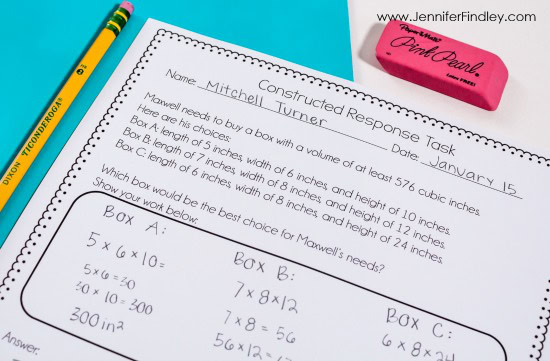 www.JenniferFindley.com
PaperMate
Pink Pearl
DIXON TICONDEROGA
Constructed Response Task
Name: Mitchell Turner Date: January 15
Maxwell needs to buy a box with a volume of at least 576 cubic inches.
Here are his choices:
Box A: length of 5 inches, width of 6 inches, and height of 10 inches.
Box B: length of 7 inches, width of 8 inches, and height of 12 inches.
Box C: length of 6 inches, width of 8 inches, and height of 24 inches.
Which box would be the best choice for Maxwell's needs?
Show your work below.
BOX A:
5 x 6 x 10=
5 x 6 = 30
30 x 10 = 300
300 in²
BOX B:
7 x 8 x 12
7 x 8 = 56
56 x 12 =
BOX C:
6 x 8 x 24
Answer: